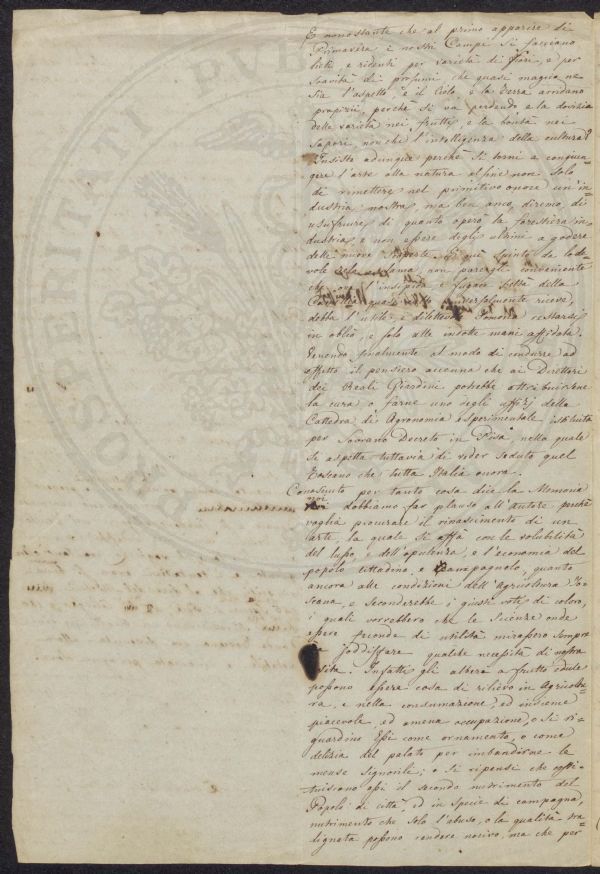 E nonostante che al primo apparire di
Primavera i nostri Campi si facciano
lieti, e ridenti per varietà di fiori, e per
soavità di profumi, che quasi magico ne
sia l'aspetto, e il Cielo, e la terra arridano
propizii, perchè si va perdendo e la dovizia
delle varietà nei frutti, e la bontà nei
sapori, non che l'intelligenza della cultura?
Insiste adunque perchè si torni a congiu=
gere l'arte alla natura al fine non solo
di rimettere nel primitivo onore un'in=
dustria nostra, ma ben anco, diremo, di
usufruire di quanto operò la forestiera in=
dustria, e non essere degli ultimi a godere
delle nuove scoperte. E quì spinto da lode=
vole zelo non pareagli conveniente
che ove l'insipida e fugace della
universalmente riceve,
debba l'utile e dilettevole Pomona restarsi
in oblio, e solo alle indotte mani affidata.
Venendo finalmente al modo di condurre ad
effetto il pensiero accenna che ai Direttori
dei Reali Giardini potrebbe attribuirsene
la cura o farne uno degli uffizj della
Cattedra di Agronomia esperimentale istituita
per Sovrano Decreto in Pisa, nella quale
si aspetta tuttavia di veder seduto quel
Toscano che tutta Italia onora.
Conosciuto per tanto cosa dice la Memoria
noi dobbiamo far plauso all'autore perchè
voglia procurare il rinascimento di un
arte, la quale si affà con le solubilità
del lusso, e dell'opulenza, e l'economia del
popolo cittadino, e campagnolo, quanto
ancora alle condizioni dell'Agricoltura To=
scana, e seconderebbe i giusti voti di coloro,
i quali vorrebbero che le Scienze onde
essere feconde di utilità mirassero sempre
a soddisfare qualche necessità di nostra
vita. Infatti gli alberi a frutto edule
possono essere cosa di rilievo in Agricoltu=
ra, e nella consumazione, ed insieme
piacevole, ed amena occupazione, o si ri=
guardino essi come ornamento, o come
delizia del palato per imbandirne le
mense signorili; o si ripensi che costi=
tuiscano essi il secondo nutrimento del
Popolo di città, ed in specie di campagna,
nutrimento che solo l'abuso, o la qualità tra=
lignata possono rendere nocivo, ma che per=